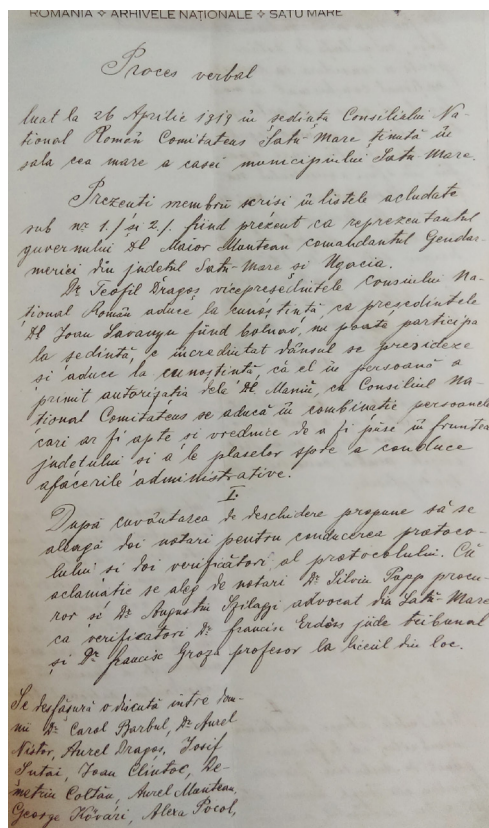 ROMANIA ✧ ARHIVELE NAȚIONALE ✧ SATU MARE
Proces verbal
luat la 26 Aprilie 1919 în sedința Consiliului Na-
țional Român Comitatens Satu-Mare ținută în
sala cea mare a casei municipiului Satu-Mare.
Prezenti membrii scrisi în listele acludate
sub nr 1./ și 2./. fiind prezent ca reprezentantul
guvernului Dl Maior Muntean comandantul Gendar-
meriei din județul Satu-Mare si Ugocia.
Dr Teofil Dragoș vicepreședintele Consiliului Na-
țional Român aduce la cunoștință, ca președintele
Dl Ioan fiind bolnav, nu poate participa
la sedință, e incredintat dânsul se prezideze
si aduce la cunoștință, că el în persoană a
primit autorizatia dela Dl Maniu, ca Consiliul Na-
țional Comitatens se aducă în combinatie persoanele
cari ar fi apte si vrednice de a fi puse în fruntea
județului si a le plaselor spre a conduce
afacerile administrative.
I.
După cuvântarea de deschidere propune să se
aleagă doi notari pentru conducerea protoco-
lului si doi verificători al protocolului. Cu
aclamatie se aleg de notari Dr Silviu Papp procu-
ror si Dr Augustin Szilagyi advocat din Satu-Mare
ca verificatori Dr Francisc Erdöss jude tribunal
și Dr Francisc Groza profesor la liceul din loc.
Se desfășură o discută intre dom-
nii Dr Carol Barbul, Dr Aurel
Nistor, Aurel Dragoș, Iosif
Sutai, Ioan Clintoc, De-
metriu Coltău, Aurel Muntean,
George Kövári, Alexa Pocol,